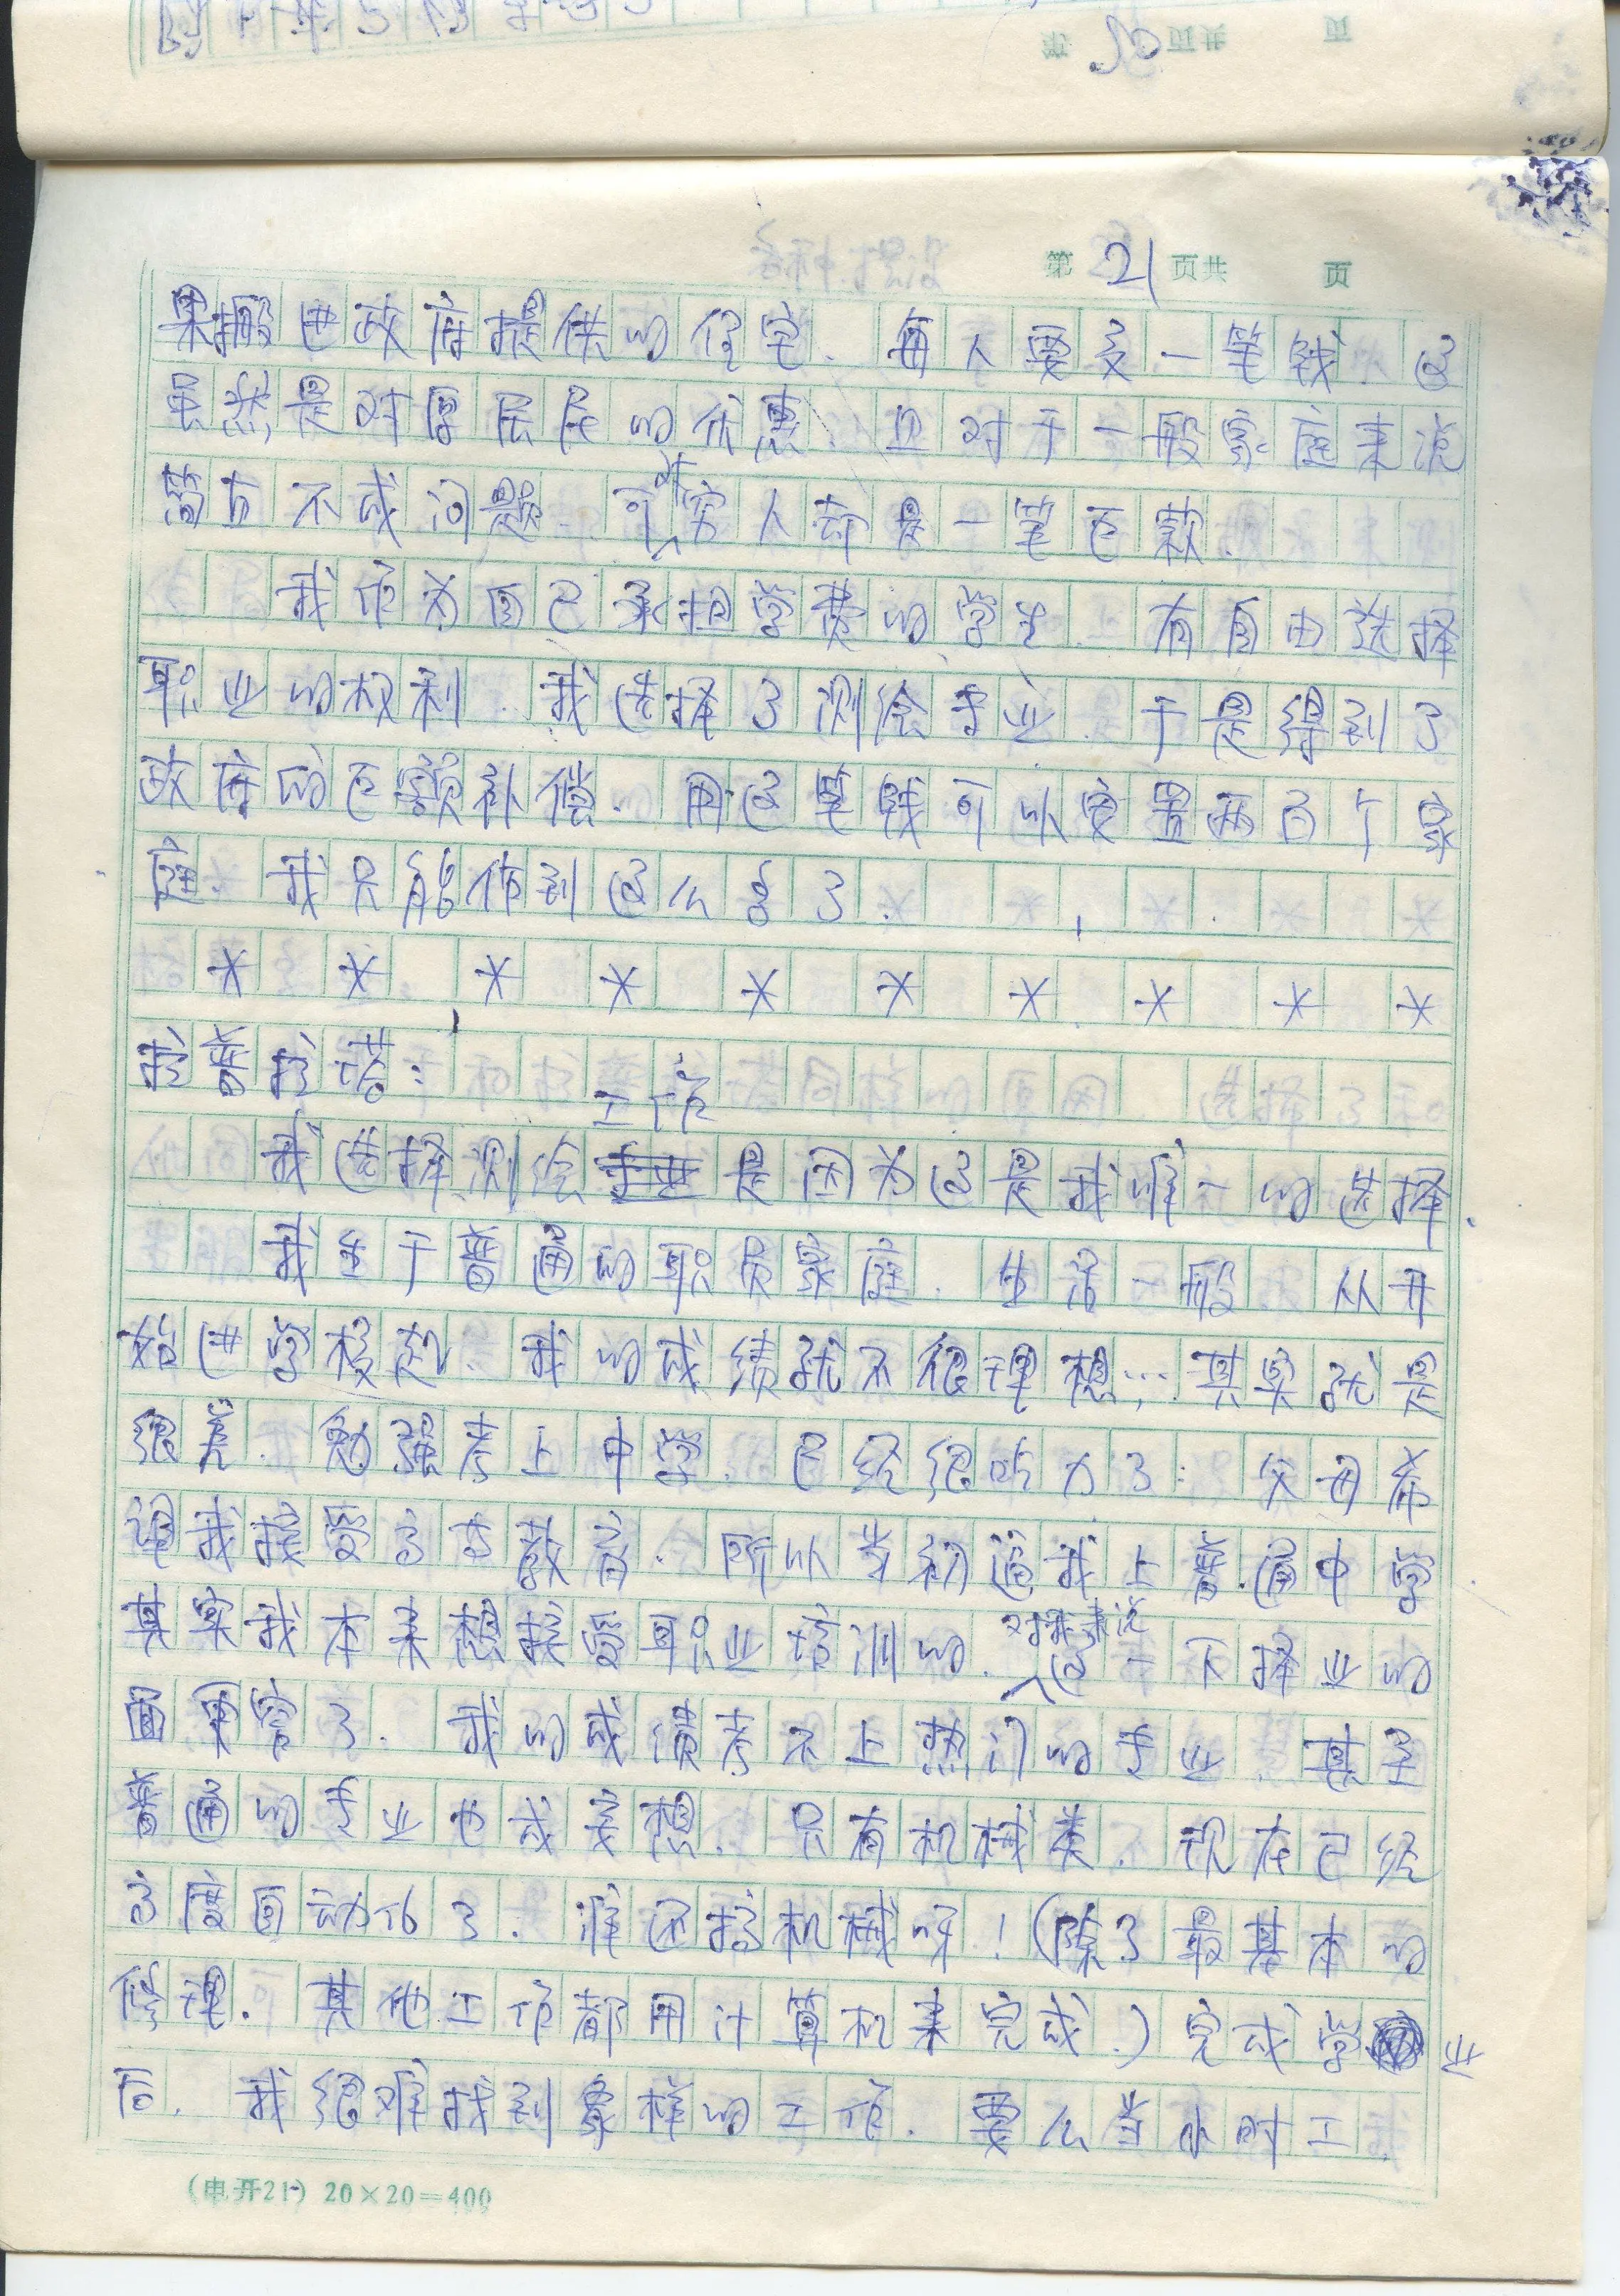 第20页共 页
第21页共 页
果搬进政府提供的住宅.每人要交一笔钱.这
虽然是对原居民的优惠.且对于一般家庭来说
简直不成问题.可对穷人却是一笔巨款.
我作为自己承担学费的学生.有自由选择
职业的权利.我选择了测绘专业.于是得到了
政府的巨额补偿.用这笔钱可以安置两百个家
庭.我只能做到这么多了.
* * * * * * * * * *
拉普拉诺:
我选择测绘工作是因为这是我唯一的选择.
我生于普通的职员家庭.生活一般.从开
始进学校起.我的成绩就不很理想…其实就是
很差.勉强考上中学.已经很吃力了:父母希
望我接受高等教育.所以当初逼我上普通中学
其实我本来想接受职业培训的.对我来说这一下择业的
面更窄了.我的成绩考不上热门的专业.甚至
普通的专业也成妄想.只有机械类.现在已经
高度自动化了.谁还搞机械呀!(除了最基本的
修理.其他工作都用计算机来完成.)完成学业
后.我很难找到象样的工作.要么当小时工.
(电开21) 20×20=400